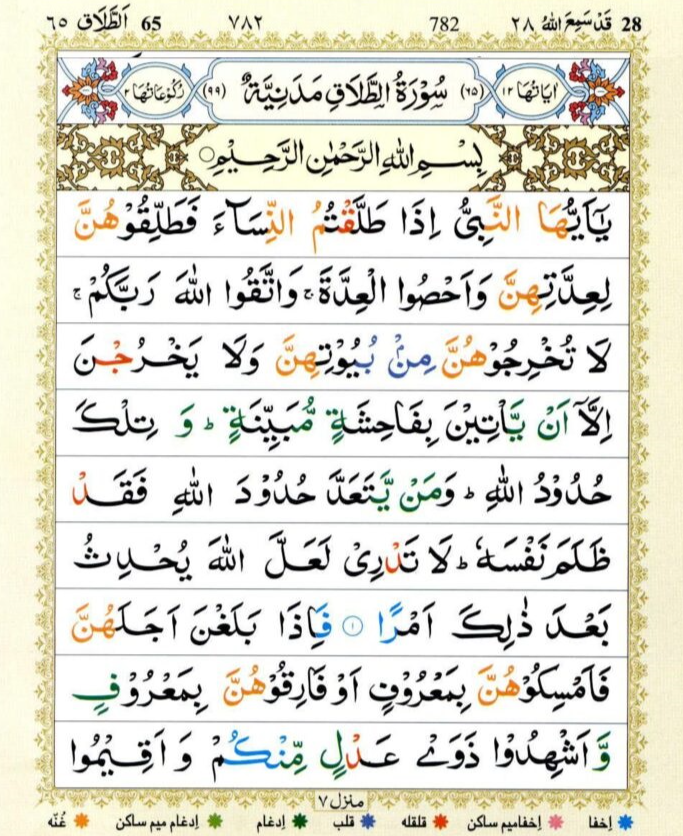 28 قَدْ سَمِعَ اللّٰهُ ٢٨ 782 ٧٨٢ 65 اَلطَّلَاق ٦٥
اٰيَاتُهَا ١٢ (٦٥) سُوْرَةُ الطَّلَاقِ مَدَنِيَّةٌ (٩٩) رُكُوْعَاتُهَا ٢
بِسْمِ اللّٰهِ الرَّحْمٰنِ الرَّحِيْمِ
يٰۤاَيُّهَا النَّبِيُّ اِذَا طَلَّقْتُمُ النِّسَآءَ فَطَلِّقُوْهُنَّ
لِعِدَّتِهِنَّ وَاَحْصُوا الْعِدَّةَ ۚ وَاتَّقُوا اللّٰهَ رَبَّكُمْ ۚ
لَا تُخْرِجُوْهُنَّ مِنْۢ بُيُوْتِهِنَّ وَلَا يَخْرُجْنَ
اِلَّاۤ اَنْ يَّاْتِيْنَ بِفَاحِشَةٍ مُّبَيِّنَةٍ ؕ وَ تِلْكَ
حُدُوْدُ اللّٰهِ ؕ وَمَنْ يَّتَعَدَّ حُدُوْدَ اللّٰهِ فَقَدْ
ظَلَمَ نَفْسَهٗ ؕ لَا تَدْرِىْ لَعَلَّ اللّٰهَ يُحْدِثُ
بَعْدَ ذٰلِكَ اَمْرًا ۝١ فَاِذَا بَلَغْنَ اَجَلَهُنَّ
فَاَمْسِكُوْهُنَّ بِمَعْرُوْفٍ اَوْ فَارِقُوْهُنَّ بِمَعْرُوْفٍ
وَّ اَشْهِدُوْا ذَوَىْ عَدْلٍ مِّنْكُمْ وَ اَقِيْمُوا
منزل ٧
اِخفا اِخفامیم ساکن قلقله قلب اِدغام اِدغام میم ساکن غُنّه